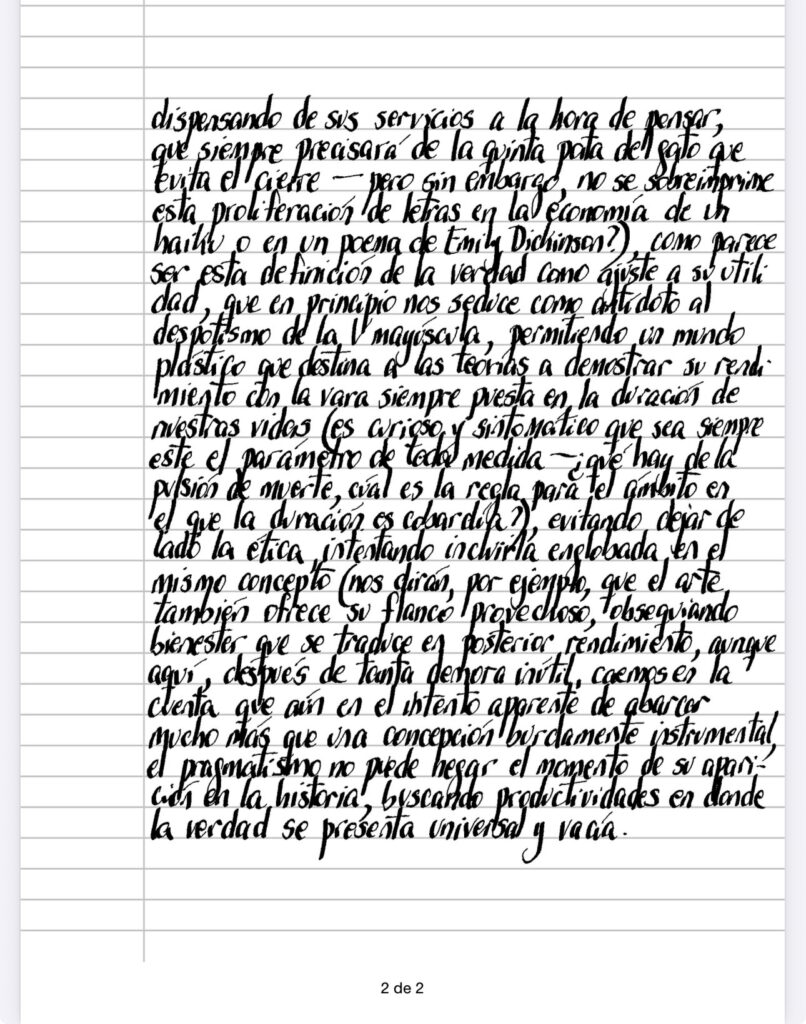 dispensando de sus servicios a la hora de pensar,
que siempre precisará de la quinta pata del gato que
evita el cierre — pero sin embargo, no se sobreimprime
esta proliferación de letras en la economía de un
haiku o en un poema de Emily Dickinson?), como parece
ser esta definición de la verdad como ajuste a su utili
dad, que en principio nos seduce como antídoto al
despotismo de la V mayúscula, permitiendo un mundo
plástico que destina a las teorías a demostrar su rendi-
miento con la vara siempre puesta en la duración de
nuestras vidas (es curioso y sintomático que sea siempre
este el parámetro de toda medida — ¿qué hay de la
pulsión de muerte, cuál es la regla para el ámbito en
el que la duración es cobardía?), evitando dejar de
lado la ética, intentando incluirla englobada en el
mismo concepto (nos dirán, por ejemplo, que el arte
también ofrece su flanco provechoso, obsequiando
bienester que se traduce en posterior rendimiento, aunque
aquí, después de tanta demora inútil, caemos en la
cuenta que aún en el intento aparente de abarcar
mucho más que una concepción burdamente instrumental,
el pragmatismo no puede negar el momento de su apari-
ción en la historia, buscando productividades en donde
la verdad se presenta universal y vacía.
2 de 2